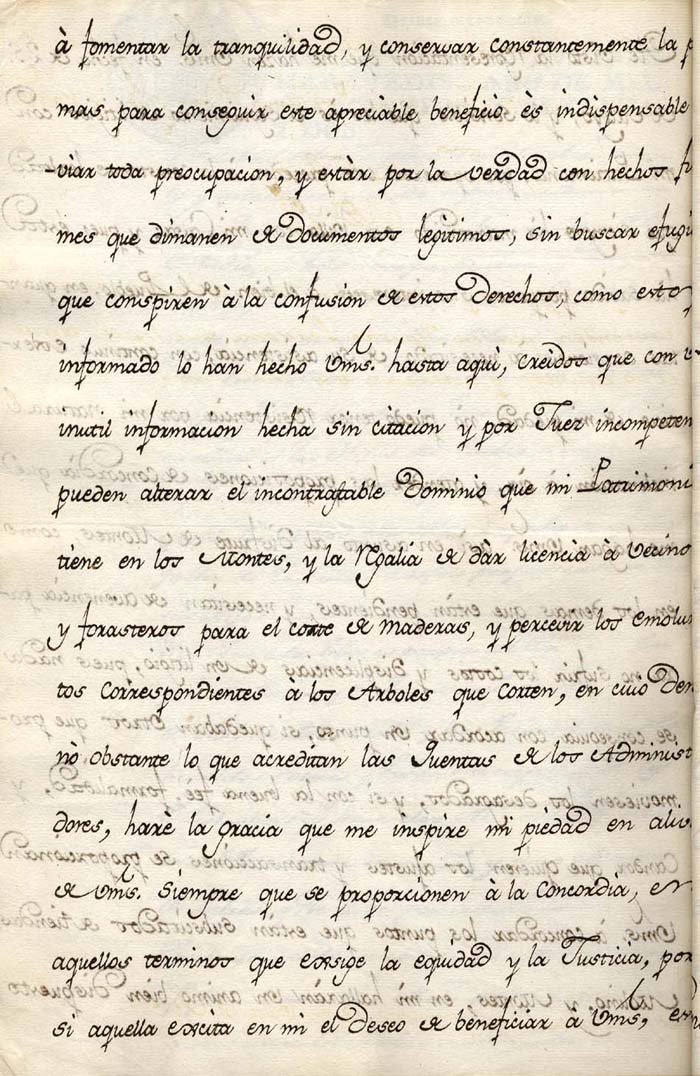 à fomentar la tranquilidad, y conservar constantemente la p
mas para conseguir este apreciable beneficio ès indispensable
-viar toda preocupacion, y estàr por la verdad con hechos fi
mes que dimanen de Documentos legitimos, sin buscar efugi
que conspiren à la confusion de estos Derechos, como estoy
informado lo han hecho Vms. hasta aqui, creidos que con u-
inutil informacion hecha sin citacion y por Juez incompeten
pueden alterar el incontrastable Dominio que mi Patrimoni
tiene en los Montes, y la Rgalia de dàr licencia à vecino
y forasteros para el corte de maderas, y percevir los emolum
tos correspondientes à los Arboles que corten, en cuio Der
nò obstante lo que acreditan las Quentas de los Administ
dores, harè la gracia que me inspire mi piedad en alivi
de Vms. Siempre que se proporcionen à la Concordia, en
aquellos terminos que exsige la equidad y la Justicia, por
si aquella excita en mi el Deseo de beneficiar à Vms,